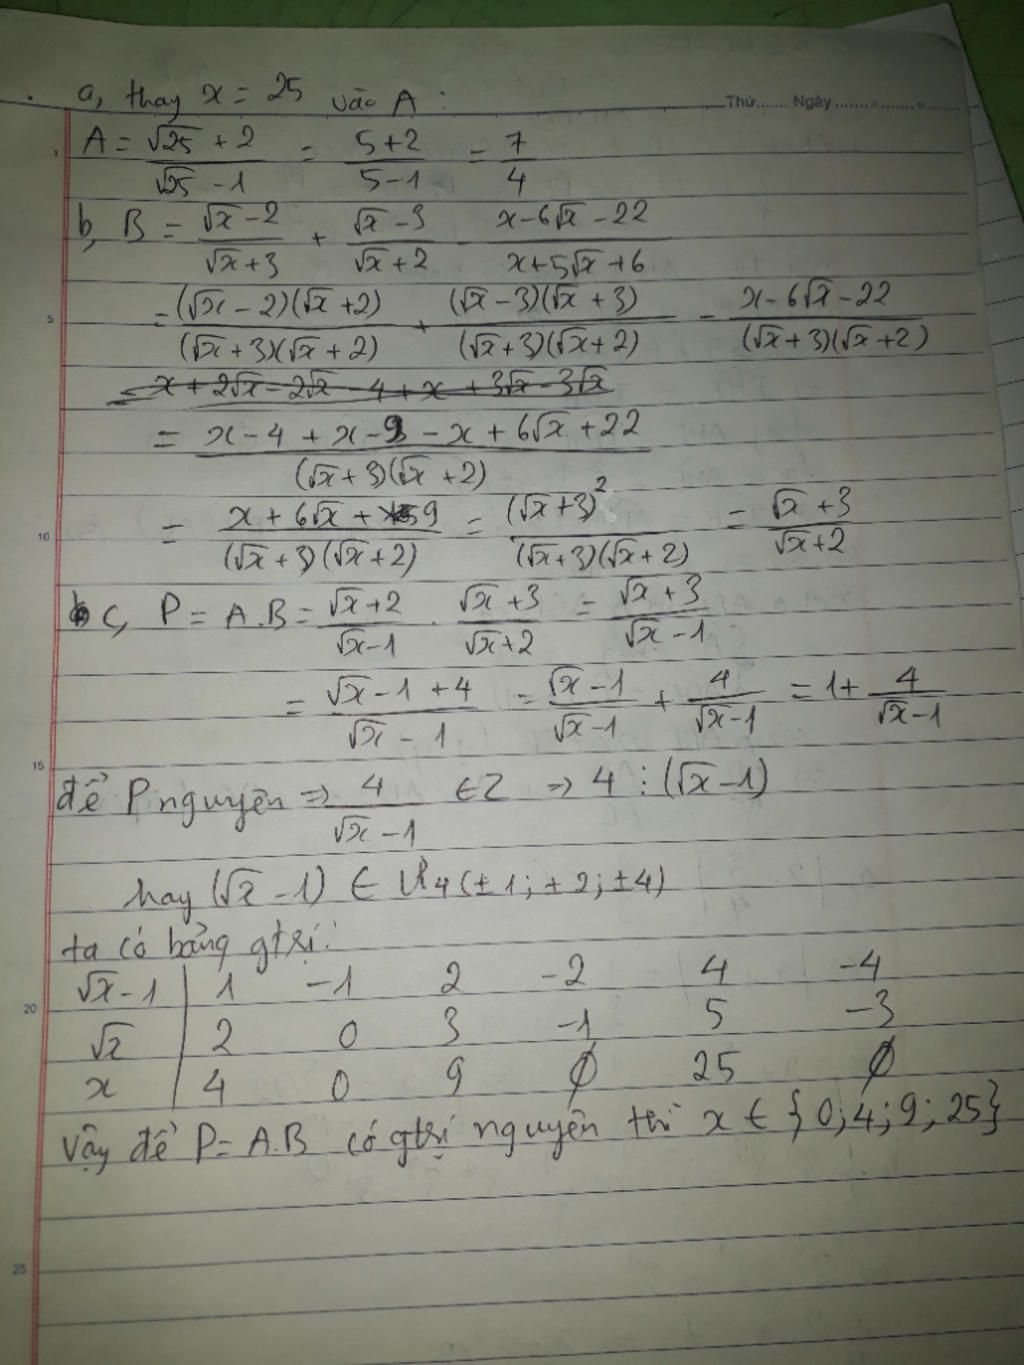 a, thay x = 25 vào A :
Thứ...... Ngày ....... . ....... . .......
A = (√25 + 2)/(√25 - 1) = (5+2)/(5-1) = 7/4
b, B = (√x - 2)/(√x + 3) + (√x - 3)/(√x + 2) - (x - 6√x - 22)/(x + 5√x + 6)
5
= (√x - 2)(√x + 2)/(√x + 3)(√x + 2) + (√x - 3)(√x + 3)/(√x + 3)(√x + 2) - (x - 6√x - 22)/(√x + 3)(√x + 2)
= x + 2√x - 2√x - 4 + x + 3√x - 3√x
= (x - 4 + x - 9 - x + 6√x + 22)/(√x + 3)(√x + 2)
10
= (x + 6√x + 9)/(√x + 3)(√x + 2) = (√x + 3)²/(√x + 3)(√x + 2) = (√x + 3)/(√x + 2)
c, P = A.B = (√x + 2)/(√x - 1) . (√x + 3)/(√x + 2) = (√x + 3)/(√x - 1)
= (√x - 1 + 4)/(√x - 1) = (√x - 1)/(√x - 1) + 4/(√x - 1) = 1 + 4/(√x - 1)
15
để P nguyên => 4/(√x - 1) ∈ Z => 4 ⋮ (√x - 1)
hay (√x - 1) ∈ Ư4 (±1; ±2; ±4)
ta có bảng gtrị:
√x - 1 | 1 -1 2 -2 4 -4
20
√x | 2 0 3 -1 5 -3
x | 4 0 9 ∅ 25 ∅
Vậy để P = A.B có gtrị nguyên thì x ∈ {0; 4; 9; 25}
25